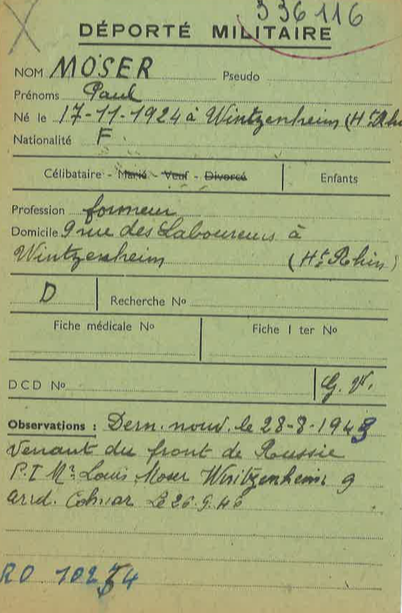 336116
DÉPORTÉ MILITAIRE
NOM MOSER Pseudo
Prénoms Paul
Né le 17-11-1924 à Wintzenheim (Ht Rhin
Nationalité F
Célibataire - Marié - Veuf - Divorcé Enfants
Profession formeur
Domicile 9 rue des Laboureurs à
Wintzenheim (Ht Rhin)
D Recherche No
Fiche médicale No Fiche 1 ter No
DCD No G. V.
Observations : Dern. nouv. le 28-8-1943
Venant du front de Roussie
P.I Mr Louis Moser Wintzenheim 9
arrd. Colmar Le 26.9.46
RO 10254